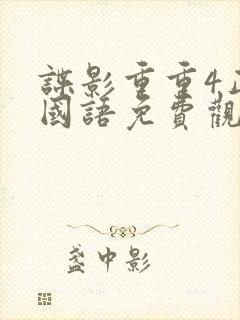 諜影重重4
國語免費觀
盞中影